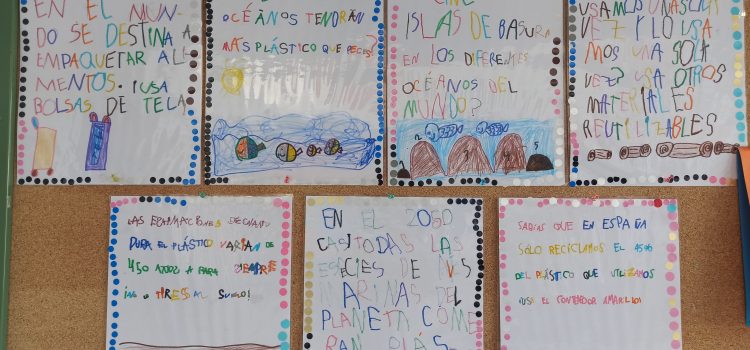 EN EL MUN-
DO SE DESTINA A
EMPAQUETAR ALI-
MENTOS. ¡USA
BOLSAS DE TELA
OCÉANOS TENDRÁN
MÁS PLÁSTICO QUE PECES?
ISLAS DE BASURA
EN LOS DIFERENTES
OCÉANOS DEL
MUNDO?
USAMOS UNA SOLA
VEZ? USA OTROS
MATERIALES
REUTILIZABLES
LAS
DURA EL PLÁSTICO VARÍAN DE
450 AÑOS A PARA SIEMPRE
TIRES AL SUELO!
EN EL 2050
CASI TODAS LAS
ESPECIES DE AVES
MARINAS DEL
PLANETA COME
RAN PLÁS-
SABÍAS QUE EN ESPAÑA
SÓLO RECICLAMOS EL 45%
DEL PLÁSTICO QUE UTILIZAMOS
¡USE EL CONTENEDOR AMARILLO!